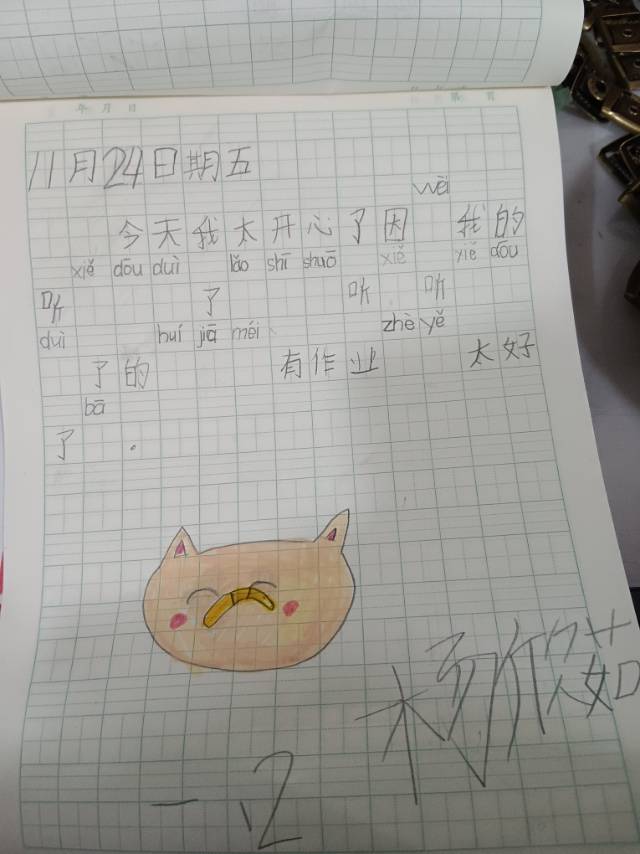 年 月 日 第 页
11月24日期五
wèi
今天我太开心了因 我的
xiě dōu duì lǎo shī shuō xiě yiě dōu
听 了 听 听
duì huí jiā méi zhè yě
了的 有作业 太好
bā
了.
杨
一 2